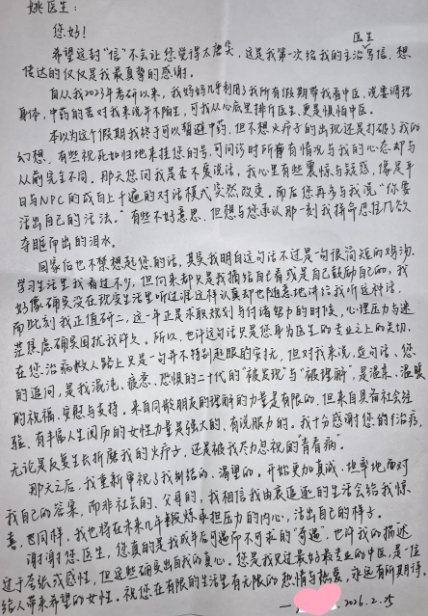 姚医生：
您好！
希望这封“信”不会让您觉得太唐突，这是我第一次给我的主治医生写信，想
传达的仅仅是我最真挚的感谢。
自从我2023年考研以来，我妈妈几乎利用了我所有假期带我看中医，说要调理
身体，中药的苦对我来说并不陌生，可我从心底里排斥医生，更是惧怕中医。
本以为这个假期我终于可以暂避中药，但不想火疗子的出现还是打破了我的
幻想，有些视死如归地来挂您的号，可问诊时所有情况与我的心态却与
从前完全不同。那天您问我是否不爱说话，我心里有些震惊与疑惑，像是平
日与NPC的成百上千遍的对话模式突然改变，而后您再多与我说“你要
活出自己的活法。”有些不好意思，但想与您承认那一刻我拼命忍住几欲
夺眶而出的泪水。
回家后也不禁想起您的话，其实我明白这句话不过是一句很简短的鸡汤，
学习生活里我看过不少，但向来都只是我摘给自己看或是自己鼓励自己的。我
好像确实没在现实生活里听过谁这样认真却也随意地讲给我听这种话，
而此刻我正值研二，这一年正是求职规划与付诸努力的时候，心理压力与迷
茫焦虑确实困扰我许久。所以，也许这句话只是您身为医生的专业之上的关切，
在您治病救人路上只是一句并不特别起眼的安抚，但对我来说，这句话、您
的追问，是我混沌、疲惫、恐惧的二十代的“被发现”与“被理解”，是温柔、温暖
的祝福、安慰与支持。来自同龄朋友的理解的力量是有限的，但来自具有社会经
验、有半辈人生阅历的女性力量是强大的、有说服力的。我十分感谢您的治疗，
无论是反复生长折磨我的火疗子，还是被我尽力忽视的“青春病”。
那天之后，我重新审视了我纠结的、渴望的，开始更加真诚、坦率地面对
我自己的答案，而非社会的、父母的，我相信我由衷追逐的生活会给我惊
喜，也同样，我也将在未来几年锻炼承担压力的内心，活出自己的样子。
谢谢您医生，您真的是我成年后可遇而不可求的“奇遇”，也许我的描述
过于夸张或感性，但这些确实出自我的真心。您是我见过最好最专业的中医，是一位
给人带来希望的女性。祝您在有限的生活里有无限的热情与热爱，永远有所期待。
2026.2.25